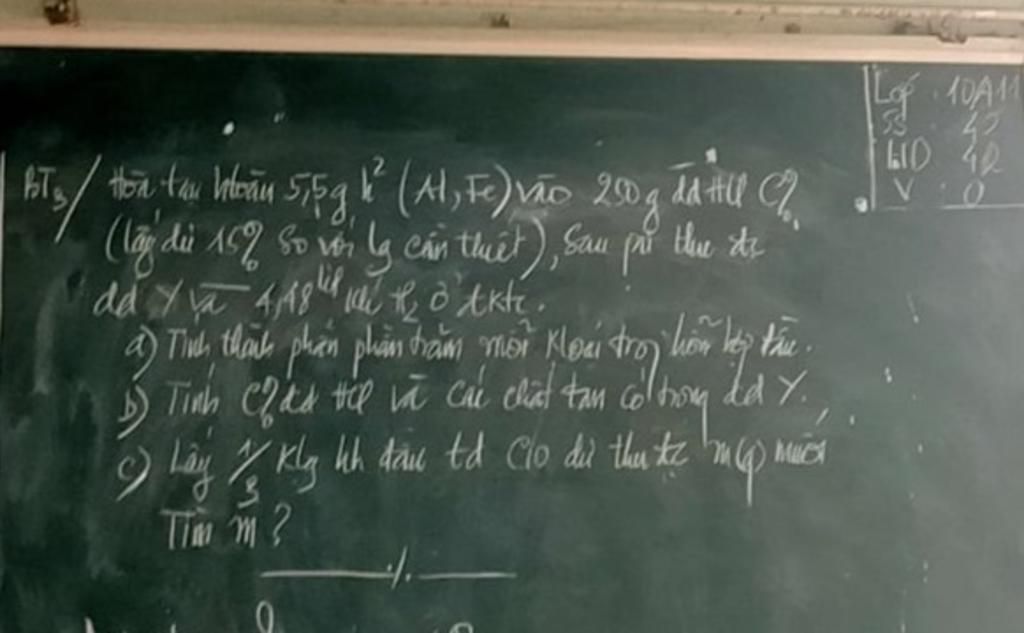 Lớp . 10A11
SS . 45
HD 42
V . 0
BT3/ Hòa tan htoàn 5,5g h² (Al, Fe) vào 250g dd HCl C%
(lấy dư 15% so với lg cần thiết), sau pứ thu đc
dd Y và 4,48 lít khí H2 ở đktc.
a) Tính thành phần phần trăm mỗi kloại trog hỗn hợp đầu.
b) Tính C% dd HCl và các chất tan có trong dd Y.
c) Lấy 1/3 klg hh đầu td Clo dư thu đc m(g) muối
Tìm m?